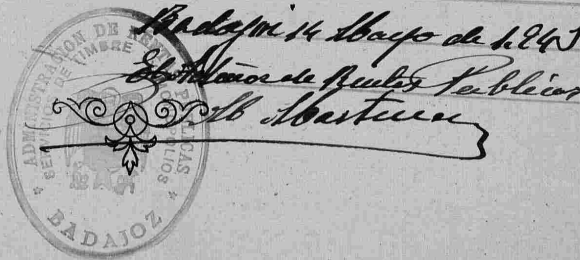 Badajoz 14 Mayo de 1.943
El Admor de Rentas Publicas
M Martinez
ADMINISTRACION DE RENTAS PUBLICAS
SERVICIO DE TIMBRE Y MONOPOLIOS
* BADAJOZ *